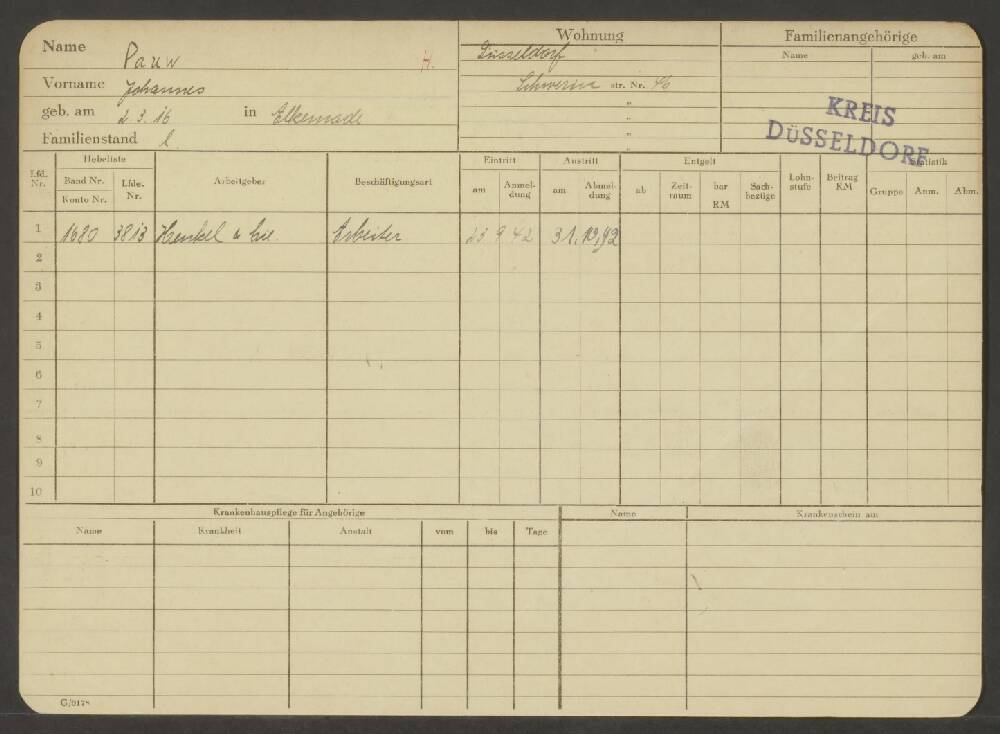 Name Pauw H.
Vorname Johannes
geb. am 2 3. 16 in Elkemade
Familienstand l
Wohnung
Düsseldorf
Schwerin str. Nr. 46
"
"
"
Familienangehörige
Name geb. am
KREIS
DÜSSELDORF
Lfd. Nr.
Hebeliste
Band Nr.
Konto Nr.
Lfde. Nr.
Arbeitgeber
Beschäftigungsart
Eintritt
am Anmel-dung
Austritt
am Abmel-dung
Entgelt
ab Zeit-raum bar RM Sach-bezüge
Lohn-stufe
Beitrag RM
Statistik
Gruppe Anm. Abm.
1 1680 3813 Henkel & Cie. Arbeiter 23 9 42 31.12.42
2
3
4
5
6
7
8
9
10
Krankenhauspflege für Angehörige
Name Krankheit Anstalt vom bis Tage
Name Krankenschein am
G/0178